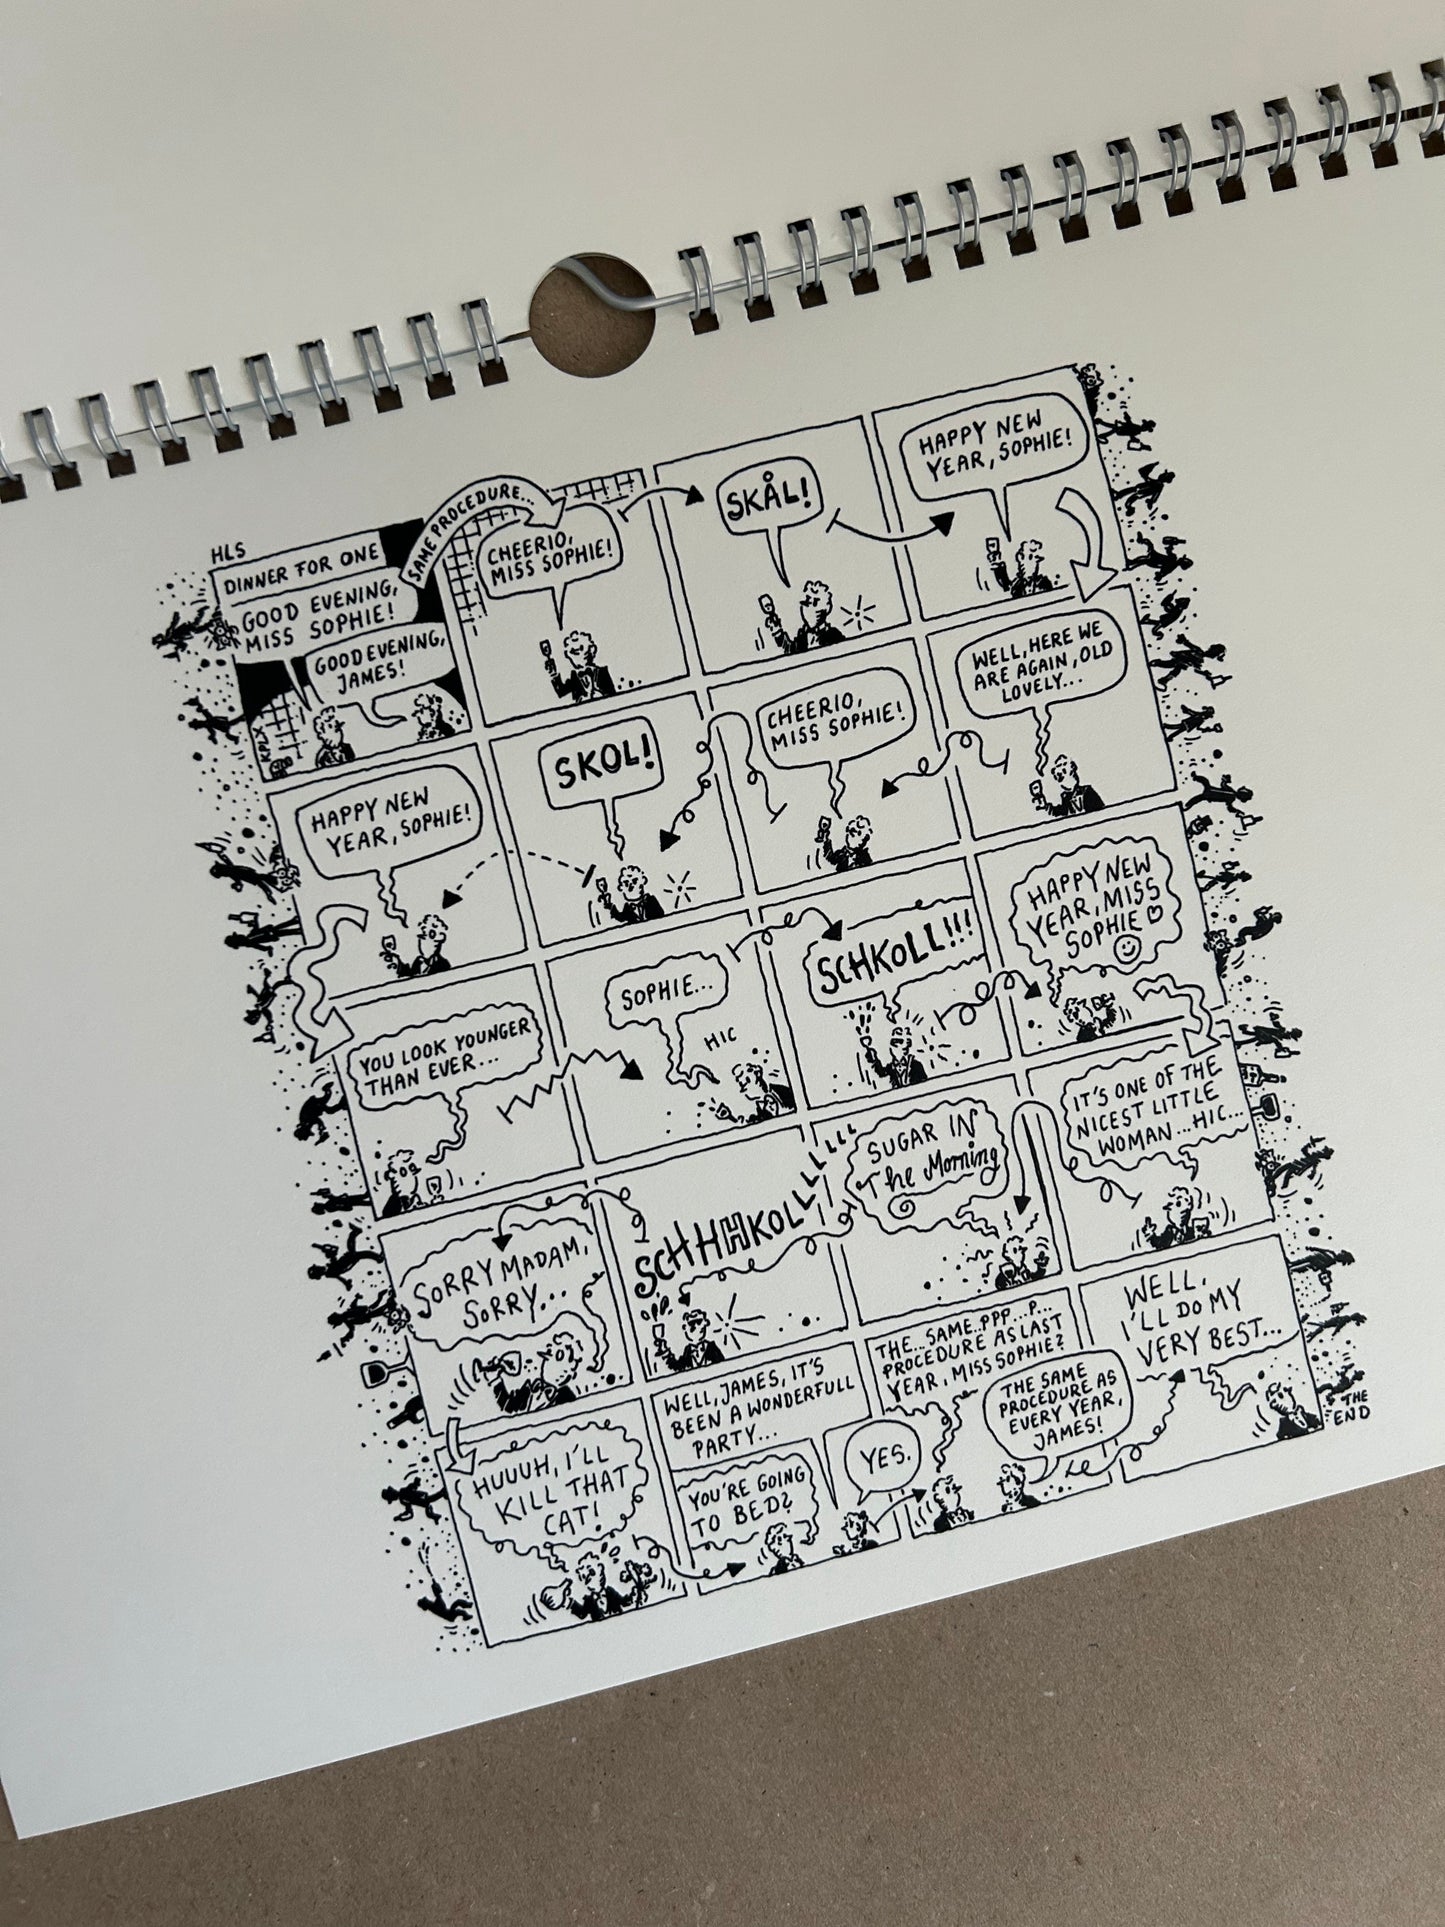 HLS
DINNER FOR ONE
GOOD EVENING,
MISS SOPHIE!
GOOD EVENING,
JAMES!
SAME PROCEDURE...
CHEERIO,
MISS SOPHIE!
SKÅL!
HAPPY NEW
YEAR, SOPHIE!
HAPPY NEW
YEAR, SOPHIE!
SKOL!
CHEERIO,
MISS SOPHIE!
WELL, HERE WE
ARE AGAIN, OLD
LOVELY...
YOU LOOK YOUNGER
THAN EVER...
SOPHIE...
HIC
SCHKOLL!!!
HAPPY NEW
YEAR, MISS
SOPHIE
SORRY MADAM,
SORRY...
SCHHHKOLLLLLLLL
SUGAR IN
The Morning
IT'S ONE OF THE
NICEST LITTLE
WOMAN...HIC...
HUUUH, I'LL
KILL THAT
CAT!
WELL, JAMES, IT'S
BEEN A WONDERFULL
PARTY...
YOU'RE GOING
TO BED?
YES.
THE...SAME..PPP...P...
PROCEDURE AS LAST
YEAR, MISS SOPHIE?
THE SAME
PROCEDURE AS
EVERY YEAR,
JAMES!
WELL,
I'LL DO MY
VERY BEST...
THE
END